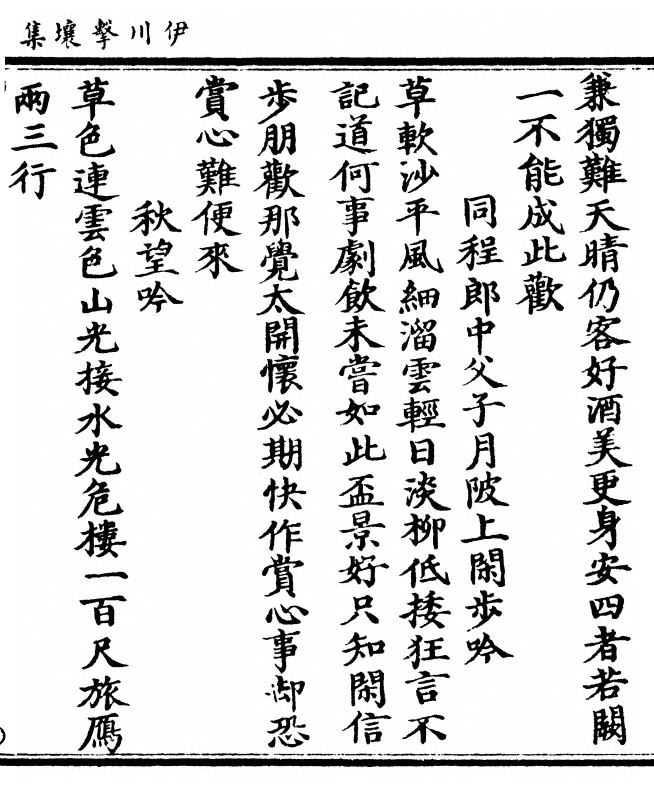 伊川擊壤集
兼獨難天晴仍客好酒美更身安四者若闕
一不能成此歡
同程郎中父子月陂上閑步吟
草軟沙平風細溜雲輕日淡柳低揍狂言不
記道何事劇飲未嘗如此盃景好只知閑信
步朋歡那覺太開懷必期快作賞心事却恐
賞心難便來
秋望吟
草色連雲色山光接水光危樓一百尺旅鴈
兩三行